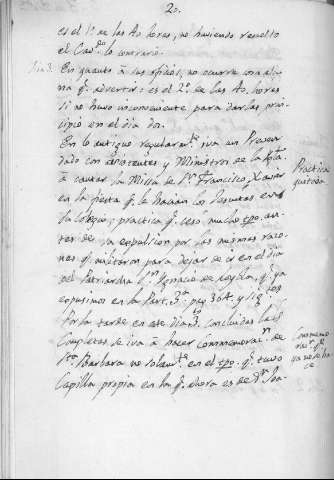 20.
es el 1º de las 40 horas, no haviendo resuelto
el Cavdo lo contrario.
Dia 3. En quanto à sus oficios, no ocurre cosa algu
na q. advertir: es el 2º de las 40 horas
si no huvo inconveniente para darlas prin-
cipio en el dia dos.
En lo antiguo regularmte iva un Preven
dado con Asistentes y Ministros de la Sta Igla
à cantar la Missa de Sn Francisco Xavier
en la fiesta q. le hacían los Jesuitas en
su Colegio; practica q. cesó mucho tpo. an-
tes de la expulsion por las mismas razo
nes q. militaron para dejar de ir en el dia
del Patriarcha Sn Ignacio de Loyola, q. ya
expusimos en la Part. 3ª pag. 364. y sig.
Practica
quitada.
Por la tarde en este dia 3. concluidas las
Completas se iva à hacer commemoracn de
Sta Barbara no solamte en el tpo. q. tuvo
Capilla propia en la q. ahora es de Sn
Commemo
racn q.
ya no se ha
ce